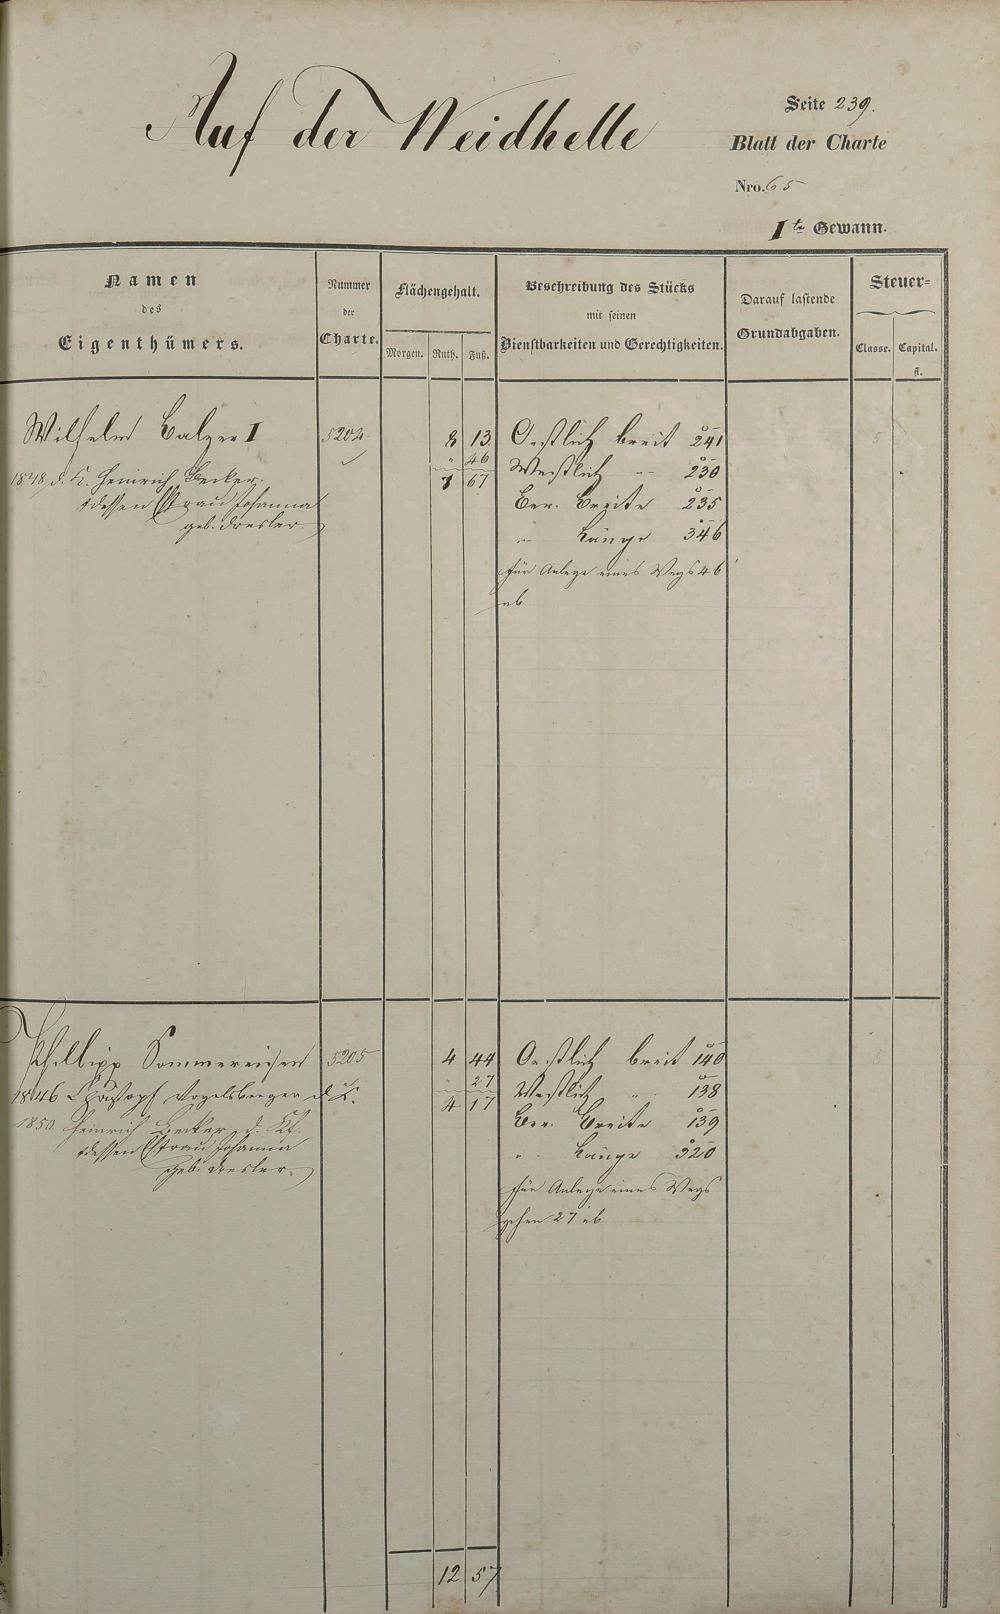 Auf der Weidhelle
Seite 239.
Blatt der Charte
Nro. 65
I te Gewann.
Namen
des
Eigenthümers.
Nummer
der
Charte.
Flächengehalt.
Morgen. Ruth. Fuß.
Beschreibung des Stücks
mit seinen
Dienstbarkeiten und Gerechtigkeiten.
Darauf lastende
Grundabgaben.
Steuer=
Classe. Capital.
fl.
Wilhelm Balzer I 5204 8 13 Oestlich breit 241
" 46 Westlich " 230
1848 d. K. Heinrich Becker, 7 67
dessen Frau Johanna Ber. Breite 235
geb. Dresler " Länge 346
für Anlage eines Wegs 46
ab
Phillipp Sommer 5205 4 44 Oestlich breit 140
" 27 Westlich " 138
1846 Christoph Vogelsberger d. K. 4 17
1850 Heinrich Becker d. K. Ber. Breite 139
dessen Frau Johanna " Länge 320
geb. Dresler
für Anlage eines Wegs
gehen 27 ab
12 57